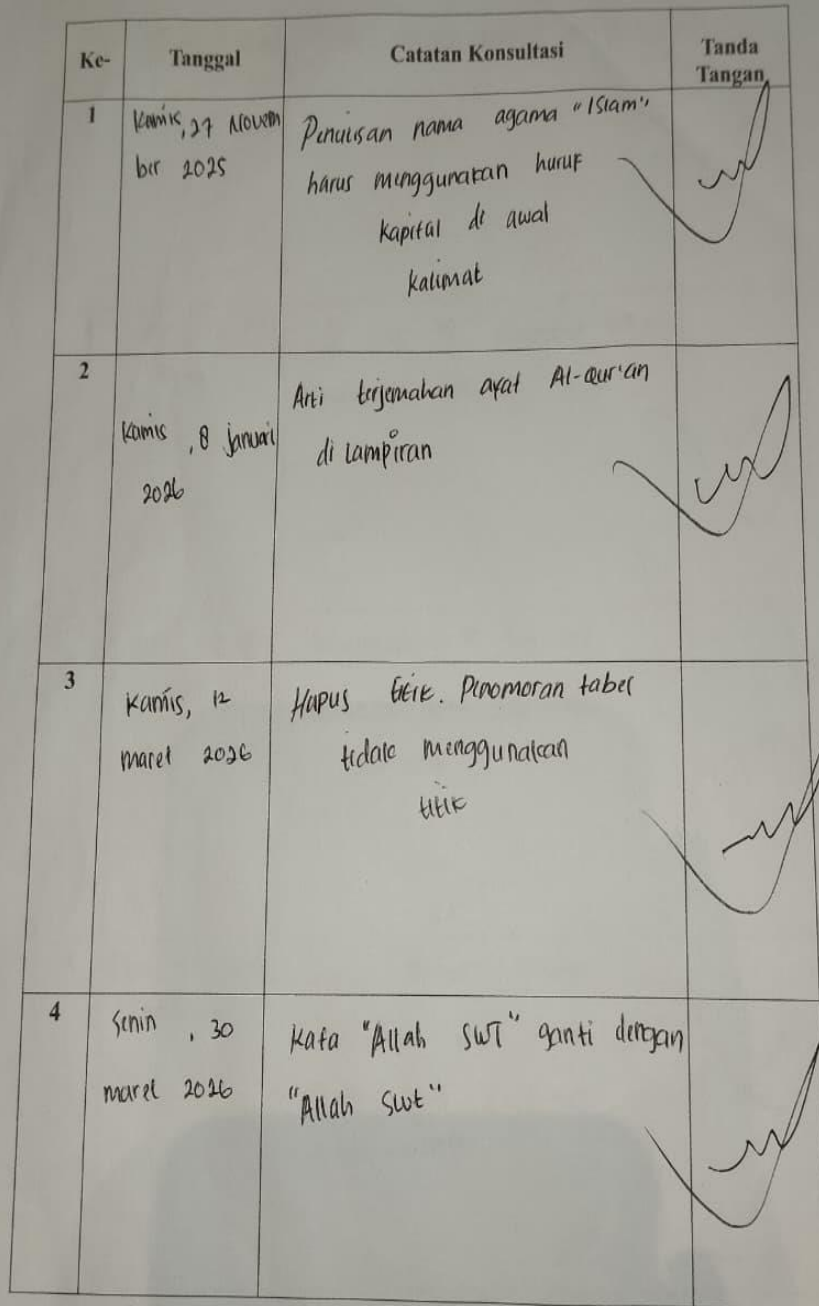 Ke- Tanggal Catatan Konsultasi Tanda Tangan
1 Kamis, 27 Novem
ber 2025
Penulisan nama agama "Islam"
harus menggunakan huruf
kapital di awal
kalimat
2
Kamis, 8 Januari
2026
Arti terjemahan ayat Al-Qur'an
di lampiran
3
Kamis, 12
maret 2026
Hapus titik. Penomoran tabel
tidak menggunakan
titik
4
Senin, 30
maret 2026
Kata "Allah SWT" ganti dengan
"Allah Swt"